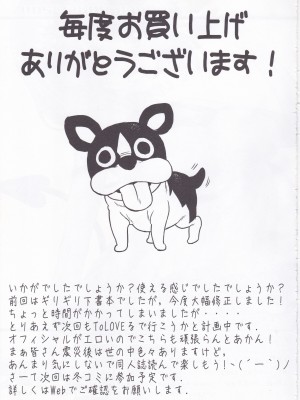 毎度お買い上げ
ありがとうございます！
いかがでしたでしょうか？使える感じでしたでしょうか？
前回はギリギリ下書本でしたが、今度大幅修正しました！
ちょっと時間がかかってしまいましたが・・・・
とりあえず次回もToLOVEるで行こうかと計画中です.
オフィシャルがエロいのでこちらも頑張らんとあかん！
まぁ皆さん震災後は世の中色々ありますけど,
あんまり気にしないで同人誌読んで楽しもう！ヽ(´ー｀)ノ
さーて次回は冬コミに参加予定です.
詳しくはWebでご確認をお願いします.